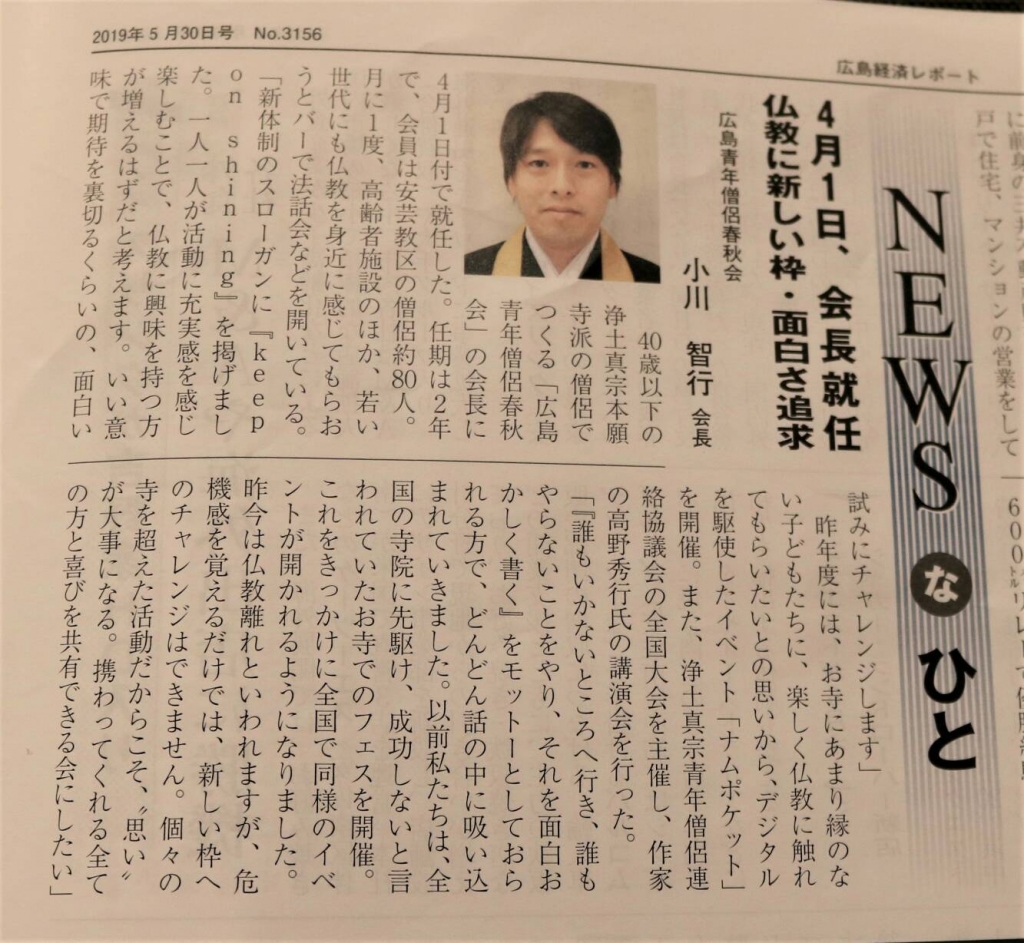 2019年5月30日号 No.3156
広島経済レポート
に前身の三井不動
戸で住宅、マンションの営業をして
NEWSなひと
4月1日、会長就任
仏教に新しい枠・面白さ追求
広島青年僧侶春秋会
小川 智行 会長
40歳以下の
浄土真宗本願
寺派の僧侶で
つくる「広島
青年僧侶春秋
会」の会長に
4月1日付で就任した。任期は2年
で、会員は安芸教区の僧侶約80人。
月に1度、高齢者施設のほか、若い
世代にも仏教を身近に感じてもらお
うとバーで法話会などを開いている。
「新体制のスローガンに『keep
on shining』を掲げまし
た。一人一人が活動に充実感を感じ
楽しむことで、仏教に興味を持つ方
が増えるはずだと考えます。いい意
味で期待を裏切るくらいの、面白い
試みにチャレンジします」
昨年度には、お寺にあまり縁のな
い子どもたちに、楽しく仏教に触れ
てもらいたいとの思いから、デジタル
を駆使したイベント「ナムポケット」
を開催。また、浄土真宗青年僧侶連
絡協議会の全国大会を主催し、作家
の高野秀行氏の講演会を行った。
「『誰もいかないところへ行き、誰も
やらないことをやり、それを面白お
かしく書く』をモットーとしておら
れる方で、どんどん話の中に吸い込
まれていきました。以前私たちは、全
国の寺院に先駆け、成功しないと言
われていたお寺でのフェスを開催。
これをきっかけに全国で同様のイベ
ントが開かれるようになりました。
昨今は仏教離れといわれますが、危
機感を覚えるだけでは、新しい枠へ
のチャレンジはできません。個々の
寺を超えた活動だからこそ、〝思い〟
が大事になる。携わってくれる全て
の方と喜びを共有できる会にしたい」